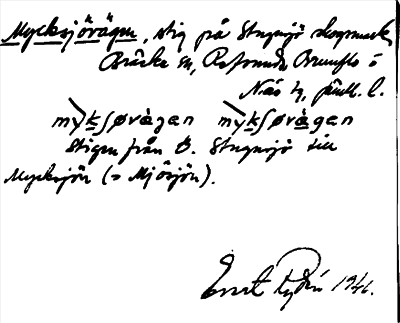 Mycksjövägen, stig på Stugusjö skogsmark,
Bräcke sn, Refsunds, Brunflo o
Näs tg, Jämtl. l.
mykʃøvägen mykʃøvägen
Stigen från Ö. Stugusjö till
Mycksjön (= Mjösjön).
Ernst 1946.